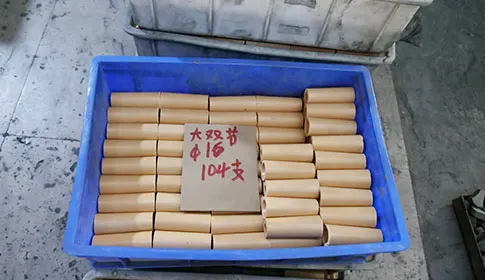 大双节
Φ16
104支